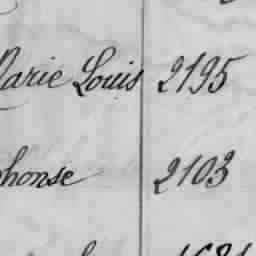 Marie Louis 2195
phonse 2103